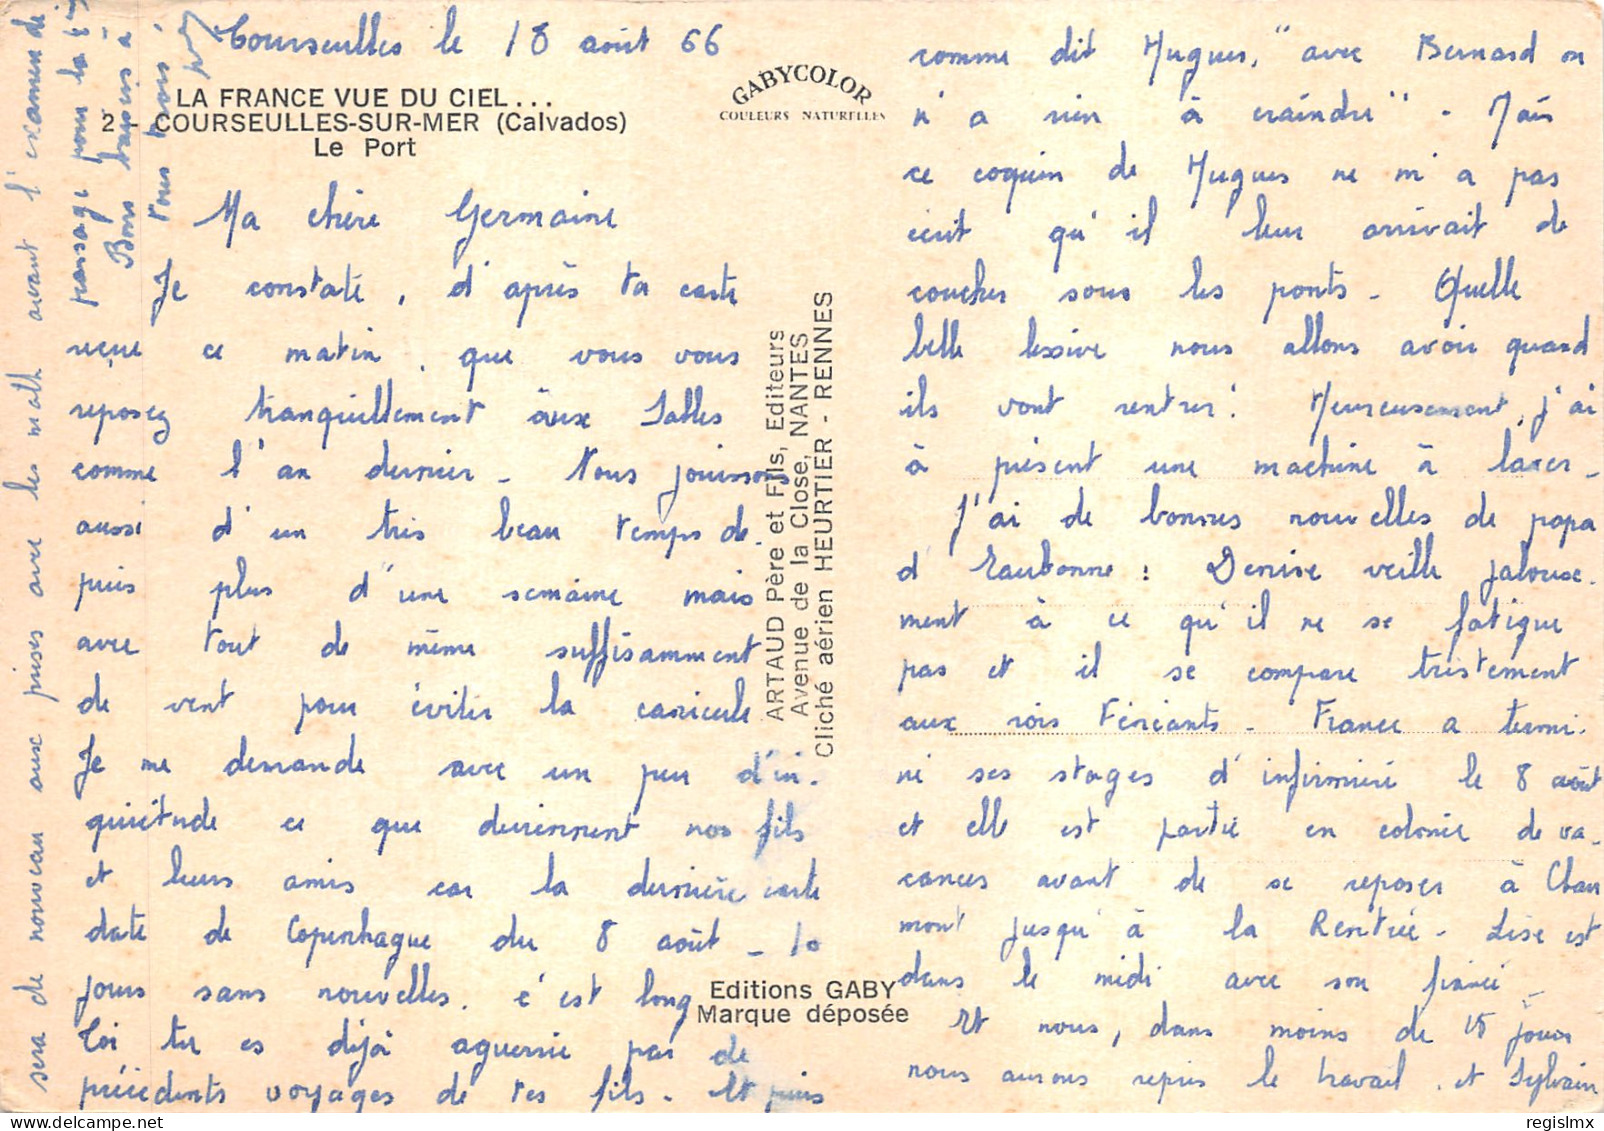 Courseulles le 18 août 66
LA FRANCE VUE DU CIEL...
2 - COURSEULLES-SUR-MER (Calvados)
Le Port
GABYCOLOR
COULEURS NATURELLES
Ma chère Germaine
Je constate, d'après ta carte
reçue ce matin, que vous vous
reposez tranquillement aux Salles
comme l'an dernier - Nous jouissons
aussi d'un très beau temps de-
puis plus d'une semaine mais
avec tout de même suffisamment
de vent pour éviter la canicule
Je me demande avec un peu d'in-
quiétude ce que deviennent nos fils
et leurs amis car la dernière carte
date de Copenhague du 8 août - 10
jours sans nouvelles, c'est long
Toi tu es déjà aguerrie par de
précédents voyages de tes fils - Et puis
comme dit Hugues, "avec Bernard on
n'a rien à craindre" - Mais
ce coquin de Hugues ne m'a pas
écrit qu'il leur arrivait de
coucher sous les ponts - Quelle
belle lessive nous allons avoir quand
ils vont rentrer! Heureusement, j'ai
à présent une machine à laver -
J'ai de bonnes nouvelles de papa
d'Eaubonne : Denise veille jalouse-
ment à ce qu'il ne se fatigue
pas et il se compare tristement
aux rois Fainéants - France a termi-
né ses stages d'infirmière le 8 août
et elle est partie en colonie de va-
cances avant de se reposer à Chau
mont jusqu'à la Rentrée - Lise est
dans le midi avec son fiancé -
Et nous, dans moins de 15 jours
nous aurons repris le travail, et Sylvain
sera de nouveau aux prises avec les math avant l'examen de
passage pour la
Bons baisers à
vous trois
ARTAUD Père et Fils, Editeurs
Avenue de la Close, NANTES
Cliché aérien HEURTIER - RENNES
Editions GABY
Marque déposée
www.delcampe.net
regislmx